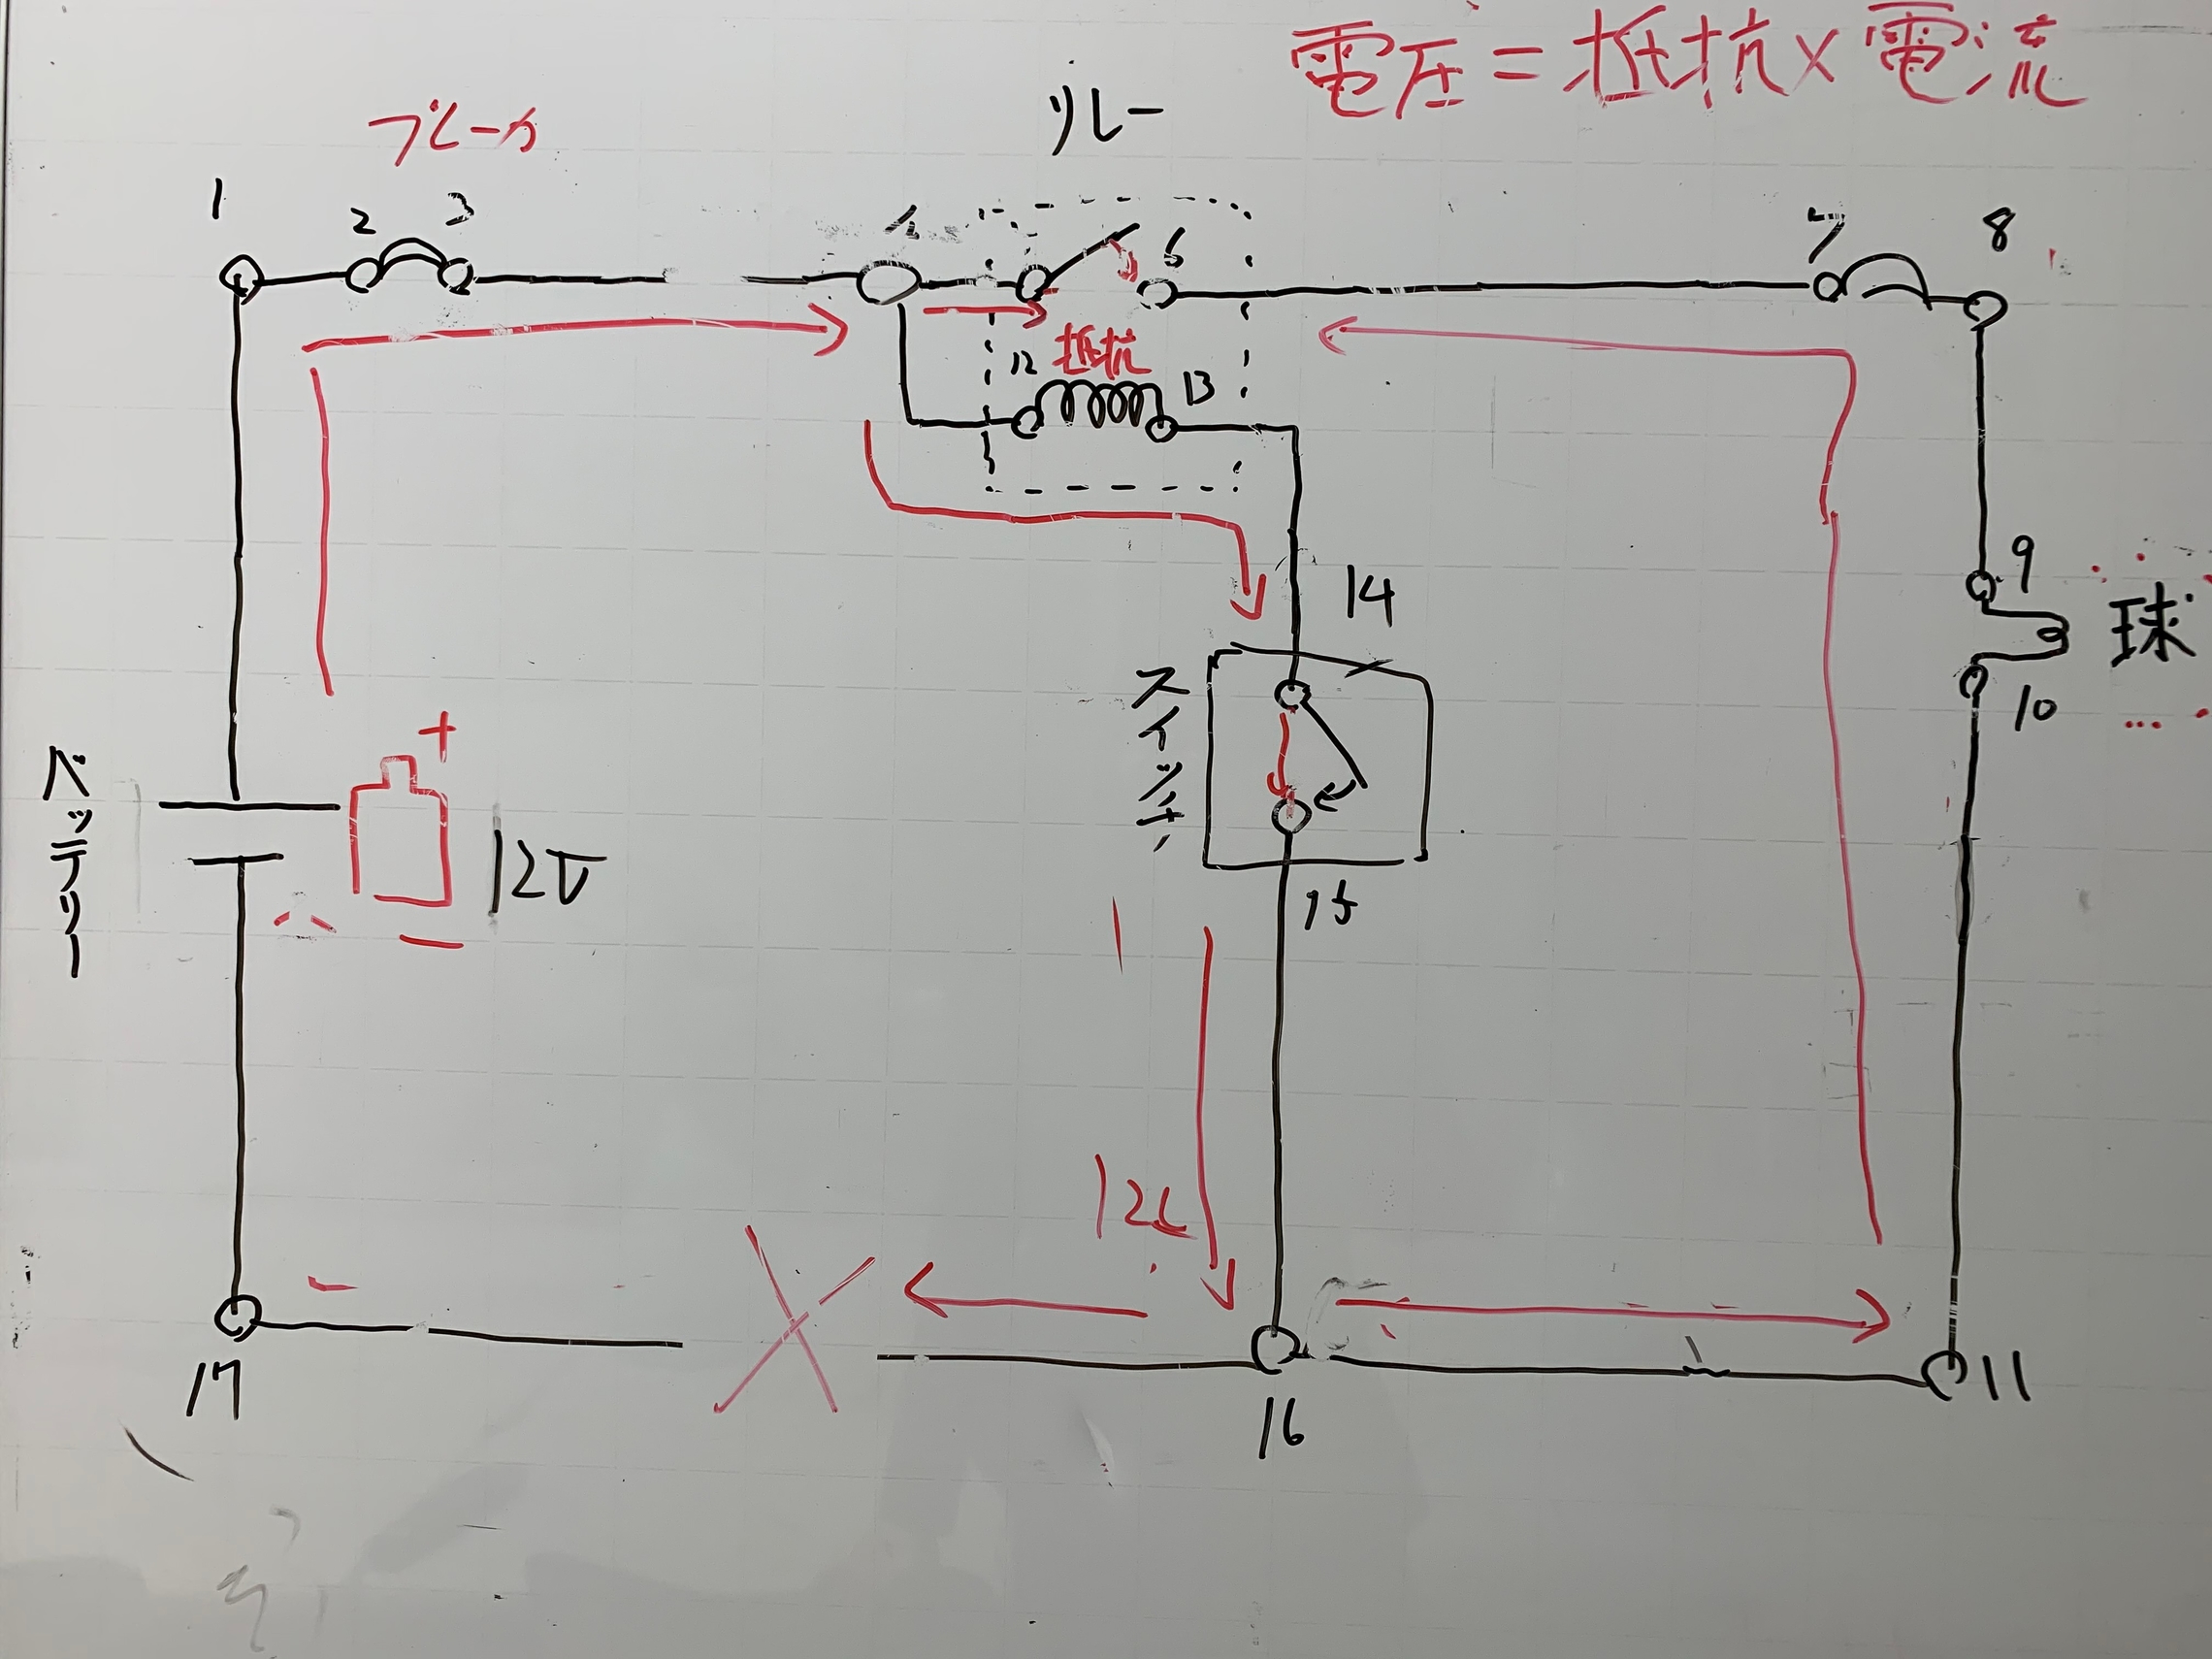 電圧=抵抗×電流
ブレーカ
リレー
1
2
3
6
7
8
12
抵抗
13
9
球
10
14
スイッチ
15
バッテリー
+
12V
−
12
−
17
16
11